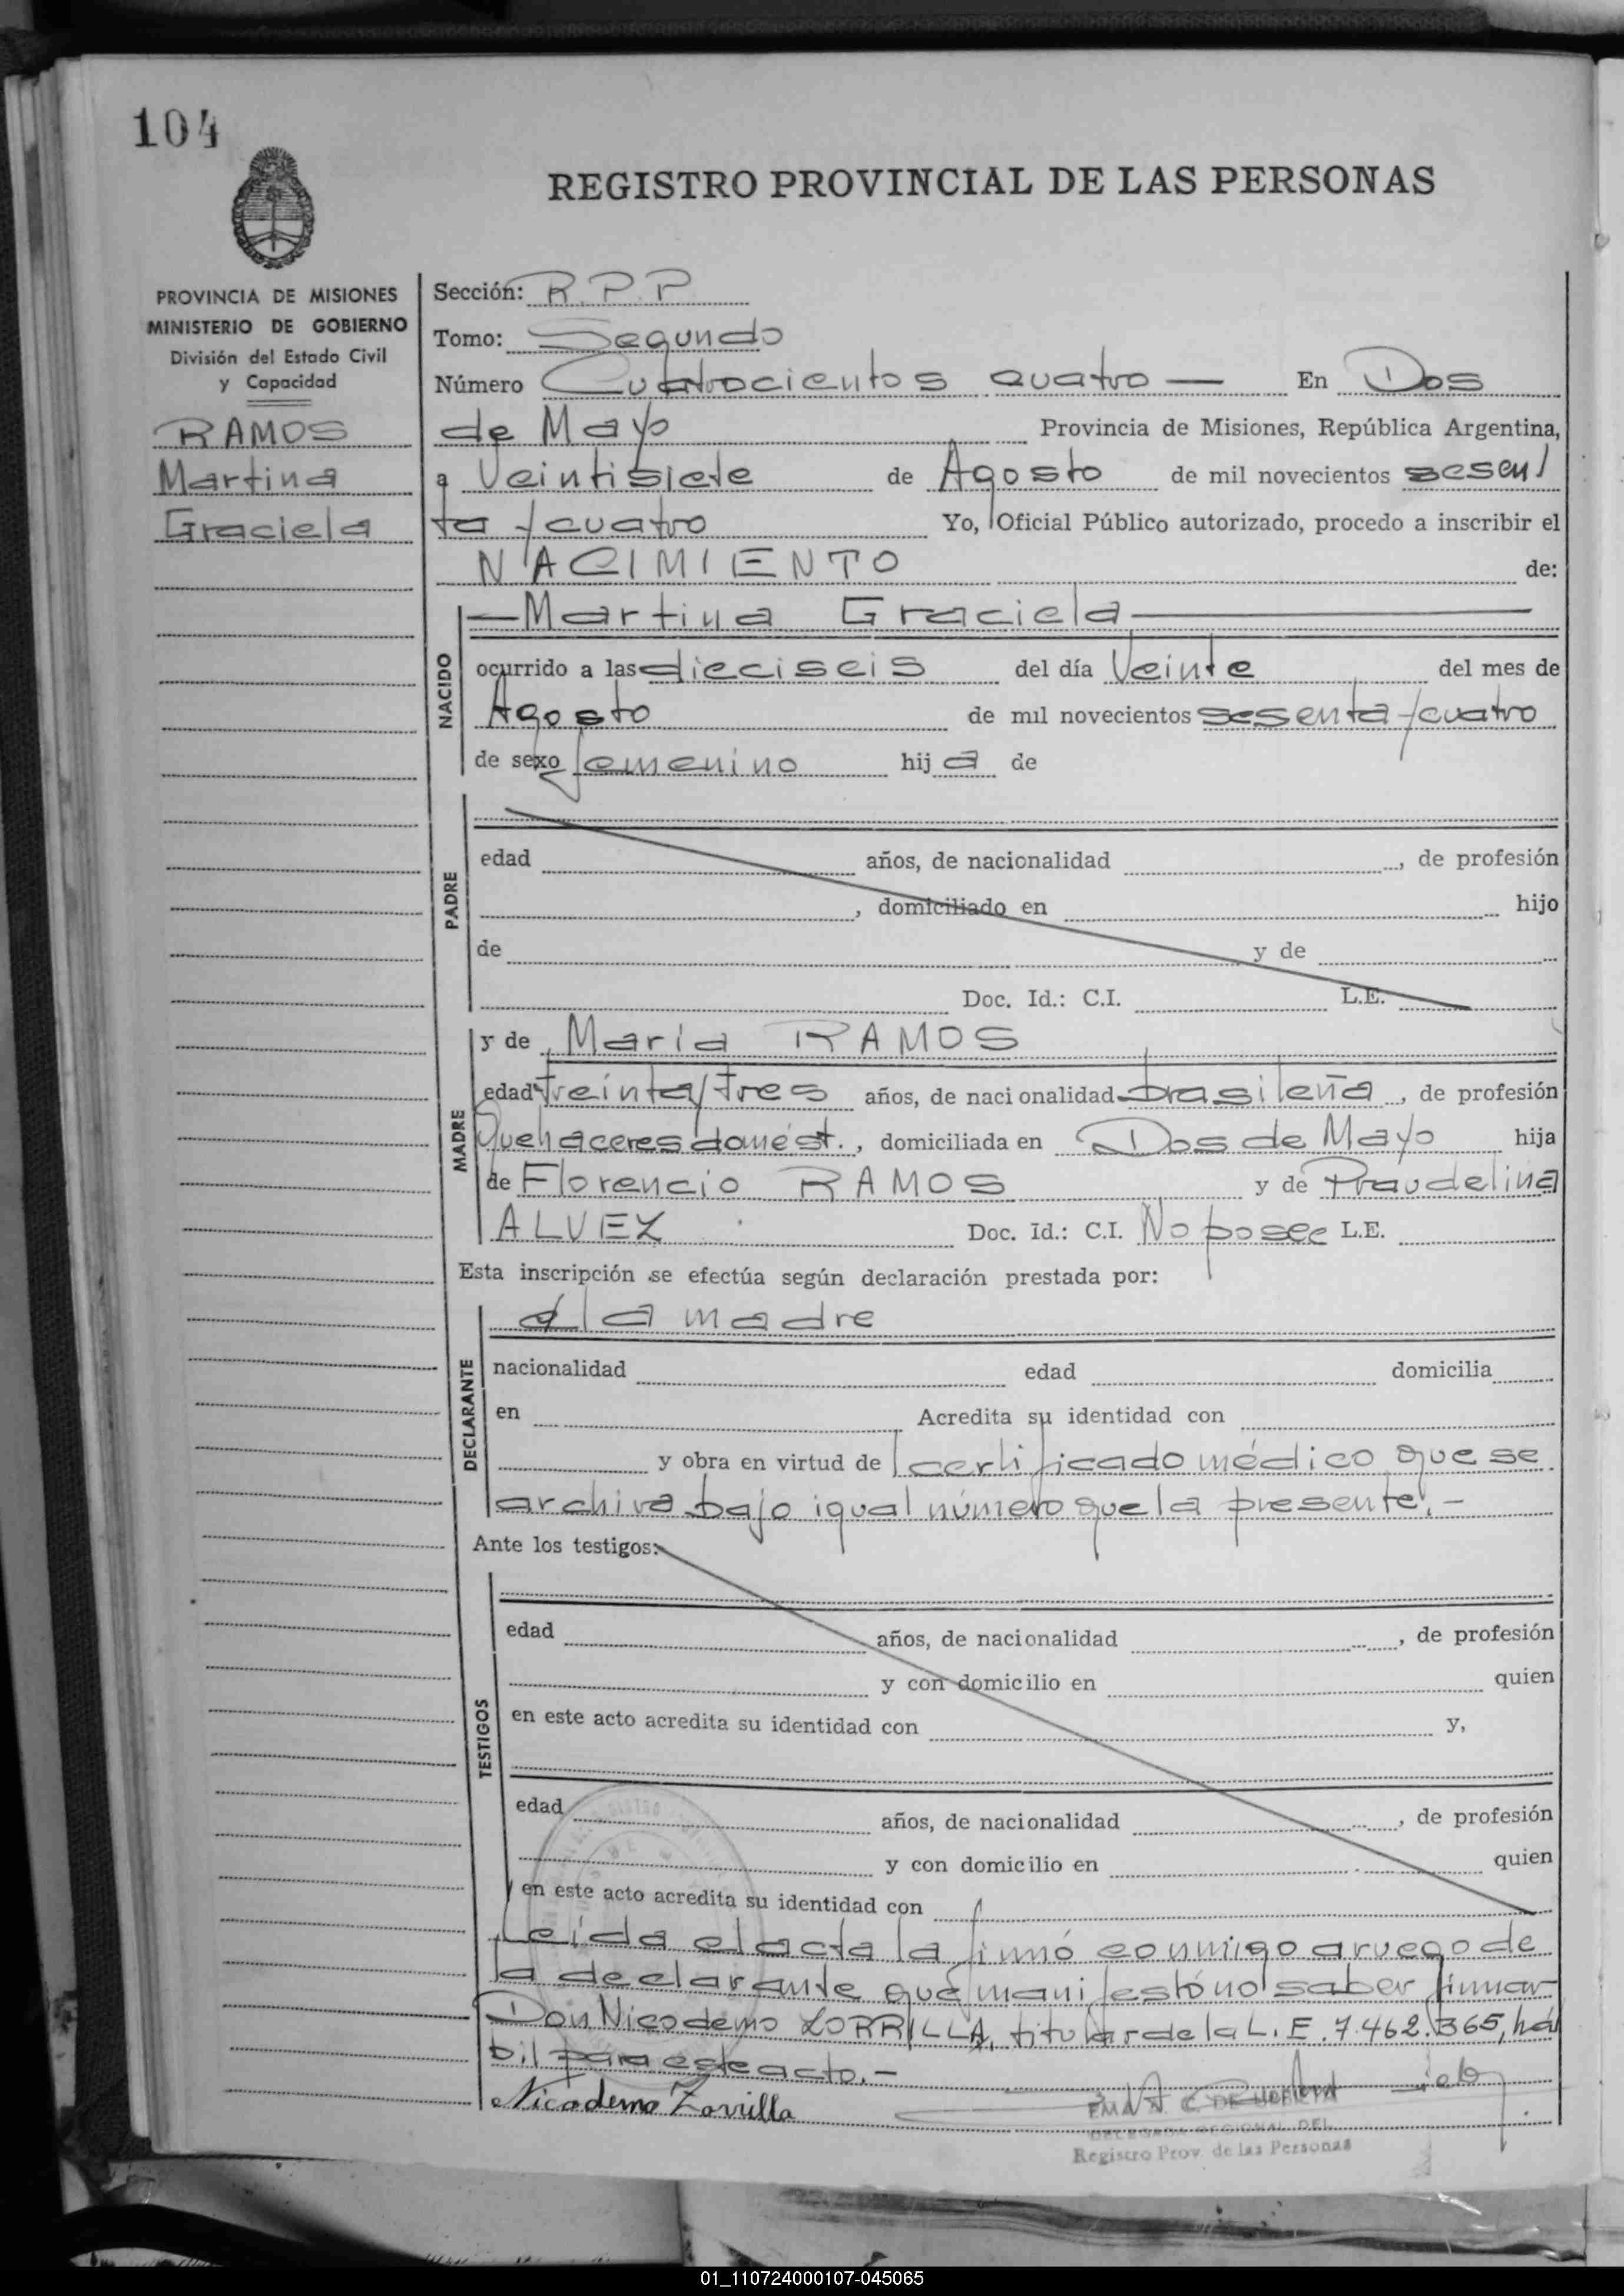 104
REGISTRO PROVINCIAL DE LAS PERSONAS
PROVINCIA DE MISIONES
MINISTERIO DE GOBIERNO
División del Estado Civil
y Capacidad
RAMOS
Martina
Graciela
Sección: R.P.P
Tomo: Segundo
Número Cuatrocientos cuatro — En Dos
de Mayo Provincia de Misiones, República Argentina,
a Veintisiete de Agosto de mil novecientos sesen/
ta y cuatro Yo, Oficial Público autorizado, procedo a inscribir el
NACIMIENTO de:
NACIDO
— Martina Graciela —
ocurrido a las dieciseis del día Veinte del mes de
Agosto de mil novecientos sesenta y cuatro
de sexo femenino hija de
PADRE
edad años, de nacionalidad , de profesión
, domiciliado en hijo
de y de
Doc. Id.: C.I. L.E.
MADRE
y de María RAMOS
edad treinta y tres años, de nacionalidad brasileña , de profesión
Quehaceres domést. , domiciliada en Dos de Mayo hija
de Florencio RAMOS y de Praudelina
ALVEZ Doc. Id.: C.I. No posee L.E.
Esta inscripción se efectúa según declaración prestada por:
DECLARANTE
la madre
nacionalidad edad domicilia
en Acredita su identidad con
y obra en virtud de certificado médico que se
archiva bajo igual número que la presente.-
Ante los testigos:
TESTIGOS
edad años, de nacionalidad , de profesión
y con domicilio en quien
en este acto acredita su identidad con y,
edad años, de nacionalidad , de profesión
y con domicilio en quien
en este acto acredita su identidad con
Leída el acta la firmó conmigo a ruego de
la declarante que manifestó no saber firmar
Don Nicodemo ZORRILLA, titular de la L.E. 7.462.365, há
bil para este acto.-
Nicodemo Zorrilla
DELEGADA REGIONAL DEL
Registro Prov. de las Personas
01_110724000107-045065